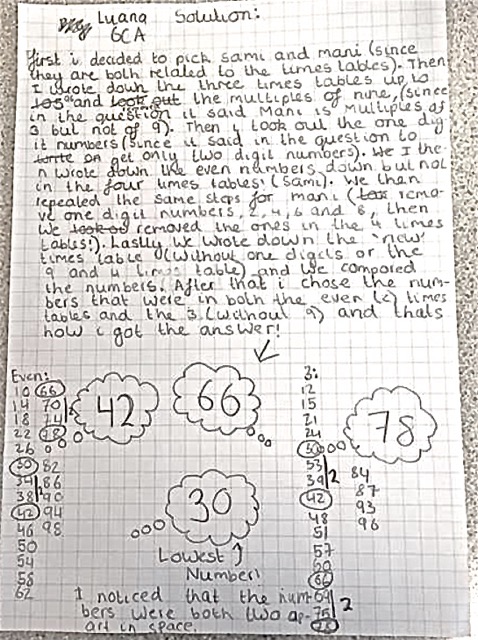 Luana Solution:
6CA
First i decided to pick sami and mani (since
they are both related to the times tables). Then
I wrote down the three times tables up to
105 and look out the multiples of nine, (since
in the question it said Mani is Multiples of
3 but not of 9). Then i took out the one dig
it numbers (since it said in the question to
write on get only two digit numbers). We I the
n wrote down the even numbers down but not
in the four times tables! (Sami). We then
repeated the same steps for mani (tax remo
ve one digit numbers, 2, 4, 6 and 8, then
We took ou removed the ones in the 4 times
tables!). Lastly we wrote down the 'new'
times table (without one digits or the
9 and 4 times table) and we compared
the numbers. After that i chose the num-
bers that were in both the even (2) times
tables and the 3 (without 9) and thats
how i got the answer!
Even:
10 66
14 70
18 74
22 78
26
30 82
34 86
38 90
42 94
46 98
50
54
58
62
42
66
78
30
Lowest
Number!
3:
12
15
21
24
30
33
39 2
42
48
51
57
60
66
69
75 2
78
84
87
93
96
I noticed that the num-
bers were both two ap-
art in space.